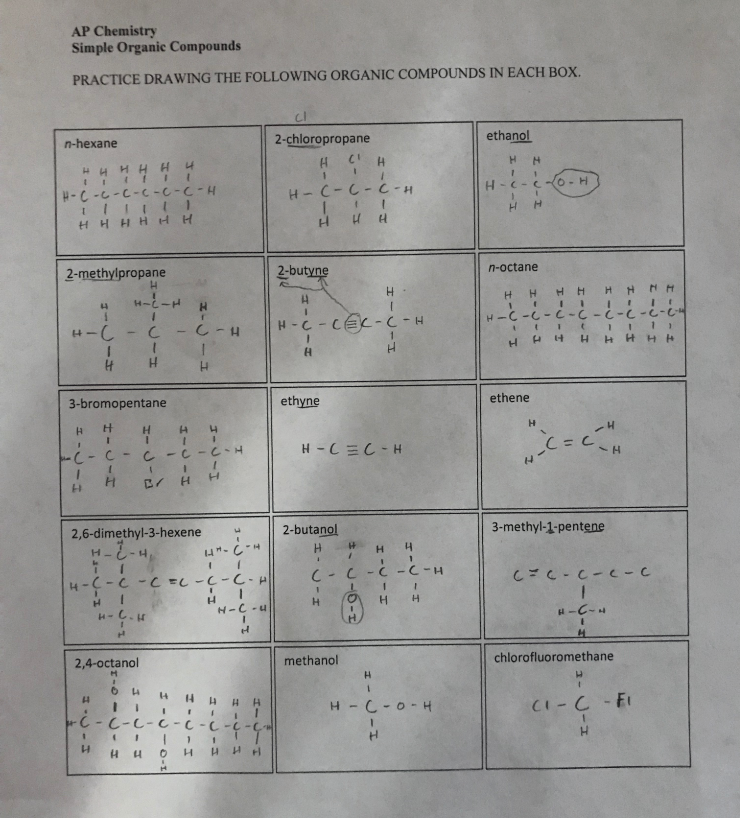 AP Chemistry
Simple Organic Compounds
PRACTICE DRAWING THE FOLLOWING ORGANIC COMPOUNDS IN EACH BOX.
Cl
n-hexane
H H H H H H
H-C-C-C-C-C-C-H
H H H H H H
2-chloropropane
H Cl H
H-C-C-C-H
H H H
ethanol
H H
H-C-C-O-H
H H
2-methylpropane
H
H-C-H
H H
H-C-C-C-H
H H H
2-butyne
H H
H-C-C≡C-C-H
H H
n-octane
H H H H H H H H
H-C-C-C-C-C-C-C-C-H
H H H H H H H H
3-bromopentane
H H H H H
-C-C-C-C-C-H
H H Br H H
ethyne
H-C≡C-H
ethene
H H
C=C
H H
2,6-dimethyl-3-hexene
H H
H-C-H H-C-H
H-C-C-C=C-C-C-H
H H
H-C-H H-C-H
H H
2-butanol
H H H H
C-C-C-C-H
H O H H
H
3-methyl-1-pentene
C=C-C-C-C
H-C-H
H
2,4-octanol
H
H O H H H H H H
H-C-C-C-C-C-C-C-C-H
H H H O H H H H
H
methanol
H
H-C-O-H
H
chlorofluoromethane
H
Cl-C-Fl
H